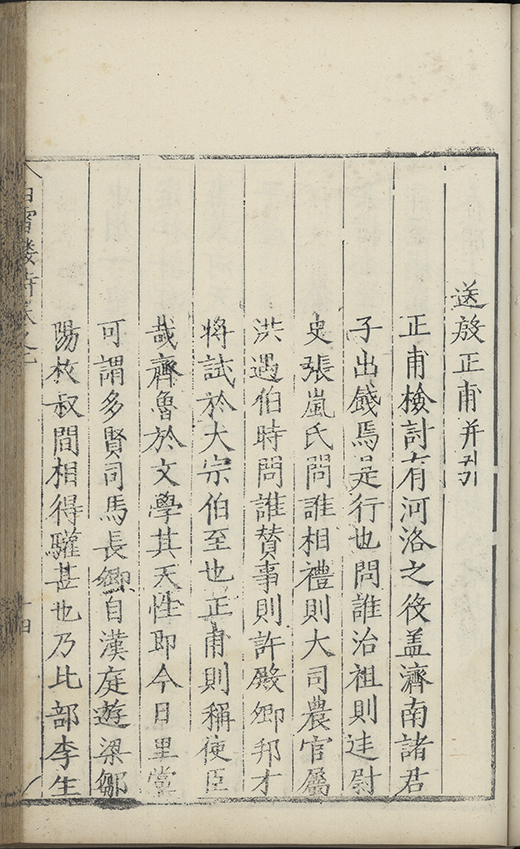 送殷正甫并引
正甫檢討有河洛之役蓋濟南諸君
子出餞焉是行也問誰治祖則連尉
史張嵐氏問誰相禮則大司農官屬
洪遇伯時問誰贊事則許殿卿邦才
將試於大宗伯至也正甫則稱使臣
哉齊魯於文學其天性即今日里黨
可謂多賢司馬長卿自漢庭遊梁鄒
陽枚叔間相得驩甚也乃比部李生
白雪樓
十四